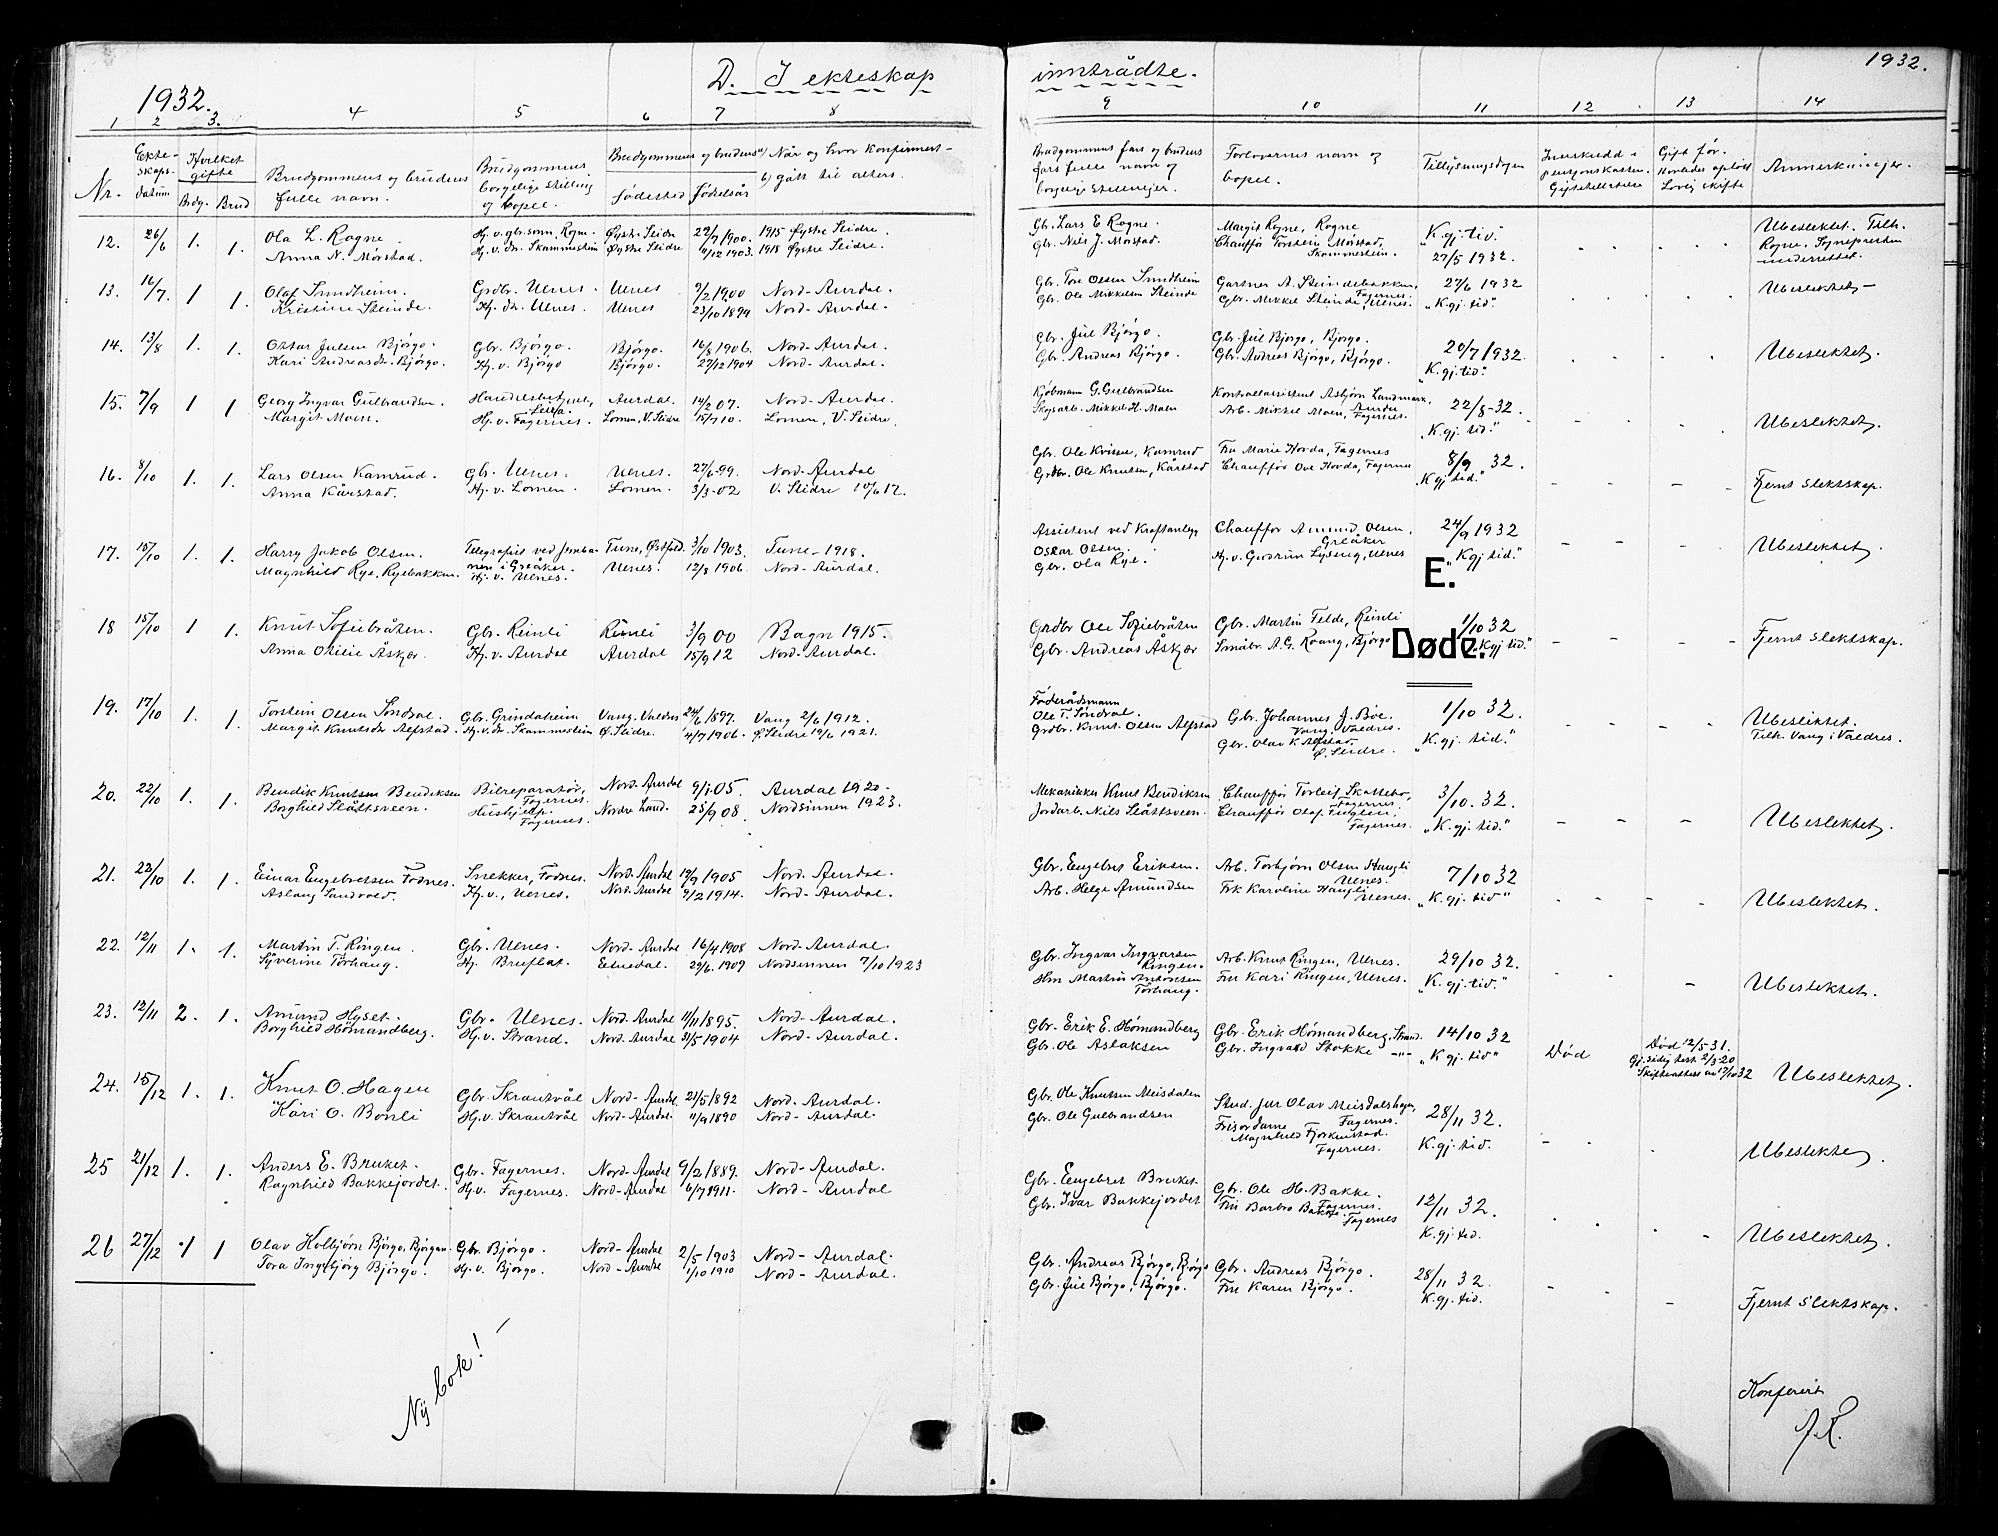 D. I ekteskap inntrådte.
1932.
1932.
1 2 3. 4 5 6 7 8 9 10 11 12 13 14
Nr. Ekteskapsdatum Hvilket gifte Brdg. Brud Brudgommens og brudens fulle navn. Brudgommens borgelige stilling og bopel. Brudgommens og brudens fødested fødselsår a) Når og hvor konfirmert - b) gått til alters.
Brudgommens fars og brudens fars fulle navn og borgelige stillinger. Forlovernes navn og bopel. Tillysningsdagen Gift før. Anmerkninger.
12. 26/6 1. 1. Ola L. Rogne. Hj. v. gbr. sønn, Rogne. Øystre Slidre 22/7 1900. 1915 Øystre Slidre. Gb. Lars E Rogne. Margit Rogne, Rogne "K. gj. tiv." Ubeslektet. Tilh.
Anna N. Mørstad. Hj. v. dr. Skammestein Øystre Slidre 4/12 1903. 1918 Øystre Slidre. Gbr. Nils J. Mørstad. Chauffør Torstein Mørstad, Skammestein. 27/5 1932. Rogne, Sognepresten underrettet.
13. 16/7. 1 1. Olaf Sundheim. Grdbr. Ulnes. Ulnes 9/2 1900 Nord-Aurdal. Gbr. Tor Olsen Sundheim Gartner A. Steindebakken, Fagernes. 27/6 1932 Ubeslektet -
Kristine Steinde. Hj. dr. Ulnes. Ulnes 23/10 1894 Nord-Aurdal. Gbr. Ole Mikkelsen Steinde Gbr. Mikkel Steinde, Ulnes. "K. gj. tid."
14. 13/8 1. 1. Oskar Julsen Bjørgo. Gbr. Bjørgo. Bjørgo. 16/8 1906. Nord-Aurdal. Gbr. Jul Bjørgo. Gbr. Jul Bjørgo, Bjørgo. 20/7 1932. Ubeslektet.
Kari Andreasdr. Bjørgo. Hj. v. Bjørgo Bjørgo. 27/12 1904 Nord-Aurdal. Gbr. Andreas Bjørgo. Gbr. Andreas Bjørgo, Bjørgo. "K. gj. tid."
15. 7/9 1 1 Georg Ingvar Gulbrandsen. Aurdal. 14/2 07. Nord-Aurdal Kjøbmann G. Gulbrandsen Kontrollassistent Asbjørn Landmark, 22/8-32. Ubeslektet.
Margit Moen. Hj. v. Fagernes. Lomen, V. Slidre 15/7 10. Lomen, V. Slidre. Skogsarb. Mikkel H. Moen Arb. Mikkel Moen, Fagernes. "K. gj. tid."
16. 8/10 1. 1. Lars Olsen Kamrud. Gbr. Ulnes. Ulnes. 27/6-99. Nord-Aurdal Gbr. Ole Kvissel, Kamrud Fru Marie Hovda, Fagernes 8/9 32. Fjernt slektskap.
Anna Kårstad. Hj. v. Lomen. Lomen. 3/3-02 V. Slidre 10/6 17. Grdbr. Ole Knutsen, Kårstad Chauffør Ole Hovda, Fagernes "K. gj. tid."
17. 15/10 1. 1. Harry Jakob Olsen. Telegrafist ved jernbanen i Greåker. Tune, Østfold. 3/10 1903. Tune-1918. Assistent ved Kraftanlegg Oskar Olsen. Chauffør Amund Olsen, Greåker 24/9 1932 Ubeslektet.
Magnhild Rye, Ryebakken. Hj. v. Ulnes. Ulnes. 12/8 1906. Nord-Aurdal. Gbr. Ola Rye. Hj. v. Gudrun Lyseng, Ulnes "K. gj. tid."
E.
18 15/10 1 1. Knut Sofiebråten. Gbr. Reinli Reinli 3/9 00 Bagn 1915. Grdbr Ole Sofiebråten Gbr. Martin Felde, Reinli 1/10 32 Fjernt slektskap.
Anna Otilie Åskjer. Hj. v. Aurdal Aurdal 15/9 12 Nord-Aurdal. Gbr. Andreas Åskjer Småbr. A. G. Roang, Bjørgo "K. gj tid."
Døde.
19. 17/10 1. 1. Torstein Olsen Søndrol. Gbr. Grindaheim Vang. Valdres 24/6 1897. Vang 2/6 1912. Føderådsmann Ole T. Søndrol. Gbr. Johannes J. Bøe. Vang, Valdres. 1/10 32. Ubeslektet.
Margit Knutsdr Alfstad. Hj. v. dr. Skammestein Ø. Slidre. 4/7 1906. Ø. Slidre 19/6 1921. Grdbr. Knut Olsen Alfstad Gbr. Olav K Alfstad, Ø. Slidre. "K. gj. tid." Tilh. Vang i Valdres.
20. 22/10 1. 1. Bendik Knutsen Bendiksen Bilreparatør, Fagernes. Nord-Aurdal 9/1 05. Aurdal 1920. Mekanikker Knut Bendiksen Chauffør Torleif Skattebo, Fagernes. 3/10. 32. Ubeslektet.
Borghild Slåttsveen. Hushjelp. Fagernes. Nordre Land. 25/9 08. Nordsinnen 1923. Jordarb. Nils Slåttsveen. Chauffør Olaf Fuglei, Fagernes. "K. gj. tid."
21. 22/10 1. 1. Einar Engebretsen Fodnes. Snekker, Fodnes. Nord-Aurdal 19/9 1905 Nord-Aurdal. Gbr. Engebret Eriksen. Arb. Torbjørn Olsen Haugli Ulnes. 7/10 32 Ubeslektet.
Aslaug Sandvold. Hj. v., Ulnes. Nord-Aurdal 9/2 1914. Nord-Aurdal. Arb. Helge Amundsen Frk Karoline Haugli Ulnes. "K. gj. tid"
22. 12/11 1. 1. Martin T. Ringen. Gbr. Ulnes. Nord-Aurdal 16/4 1908 Nord-Aurdal. Gbr. Ingvar Ingvarsen Ringen. Arb. Knut Ringen, Ulnes. 29/10 32. Ubeslektet.
Syverine Torhaug. Hj. Bruflat. Etnedal. 29/6. 1909 Nordsinnen 7/10 1923 Hm Martin Antonsen Torhaug. Fru Kari Ringen, Ulnes. "K. gj. tid."
23. 12/11 2. 1. Amund Hyset. Gbr. Ulnes. Nord-Aurdal 11/11 1895. Nord-Aurdal. Gbr. Erik E. Hømandberg Gbr. Erik Hømandberg, Strand. 14/10 32 Død Død 12/5-31.
Borghild Hømandberg. Hj. v. Strand. Nord-Aurdal 31/5 1904 Nord-Aurdal. Gbr. Ole Aslaksen Gbr. Ingvald Stokke -"- "K. gj. tid" Skifteattest av 17/10 32 Ubeslektet.
24. 15/12 1. 1. Knut O. Hagen Gbr. Skrautvål Nord-Aurdal 21/5 1892 Nord-Aurdal. Gbr. Ole Knutsen Meisdalen Stud. jur Olav Meisdalshagen, Fagernes. 28/11 32. Ubeslektet.
Kari O. Bonli Hj. v. Skrautvål Nord-Aurdal 11/9 1890 Nord-Aurdal. Gbr. Ole Gulbrandsen Frisørdame Magnhild Fjorkenstad. Fagernes. K. gj. tid.
25 21/12 1. 1. Anders E. Bruket. Gbr. Fagernes. Nord-Aurdal 9/2 1889. Nord-Aurdal. Gbr. Engebret Bruket Gbr. Ole H. Bakke. Fagernes. 12/11 32. Ubeslektet.
Ragnhild Bakkejordet. Hj. v. Fagernes. Nord-Aurdal 6/7 1911. Nord-Aurdal Gbr. Ivar Bakkejordet Fru Barbro Bakke. Fagernes K. gj. tid.
26 27/12 1 1 Olav Kolbjørn Bjørgo, Bjørgan. Gbr. Bjørgo. Nord-Aurdal 2/5 1903 Nord-Aurdal. Gbr. Andreas Bjørgo, Bjørgo Gbr. Andreas Bjørgo. 28/11 32. Fjernt slektskap.
Tora Ingebjørg Bjørgo. Hj. v. Bjørgo. Nord-Aurdal 1/10 1910 Nord-Aurdal. Gbr. Jul Bjørgo, Bjørgo. Fru Karen Bjørgo. K. gj. tid.
Ny bok! -
Konferert
A.R.